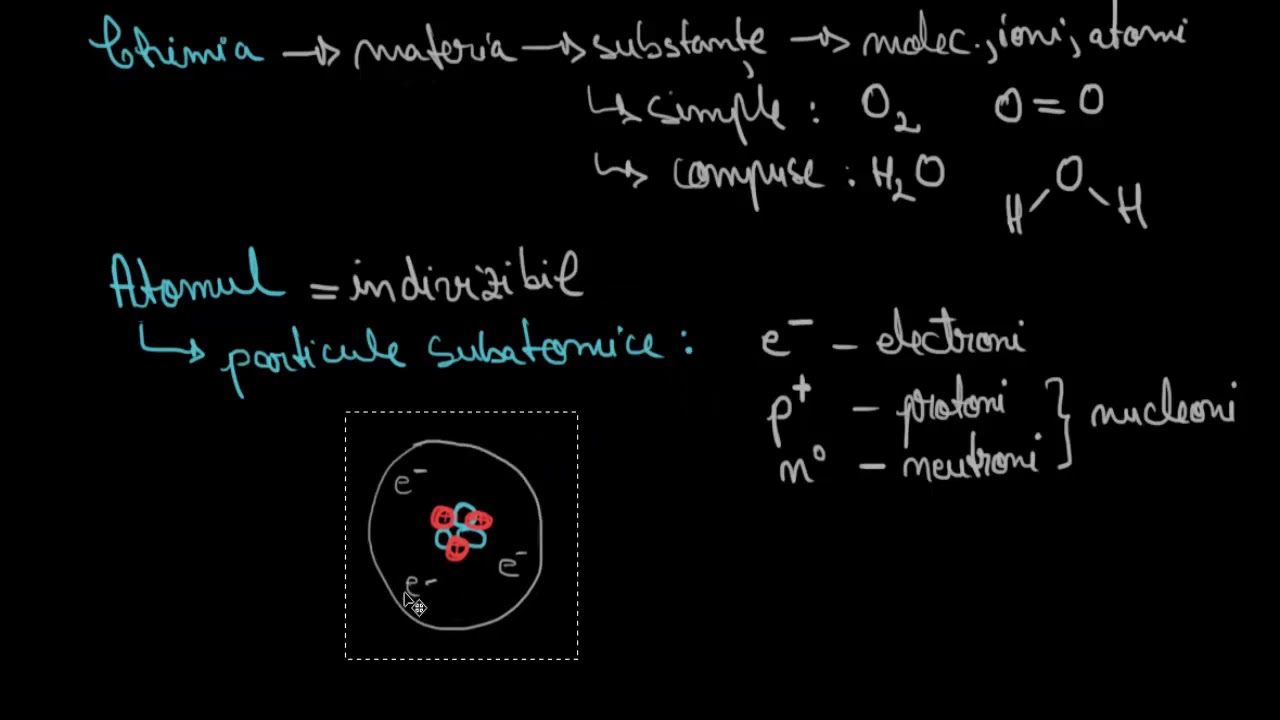 Chimia → materia → substanțe → molec., ioni, atomi
↳ simple : O₂ O=O
↳ compuse : H₂O H O H
Atomul = indivizibil
↳ particule subatomice : e⁻ – electroni
p⁺ – protoni } nucleoni
n⁰ – neutroni
e⁻
+ +
+
e⁻
e⁻